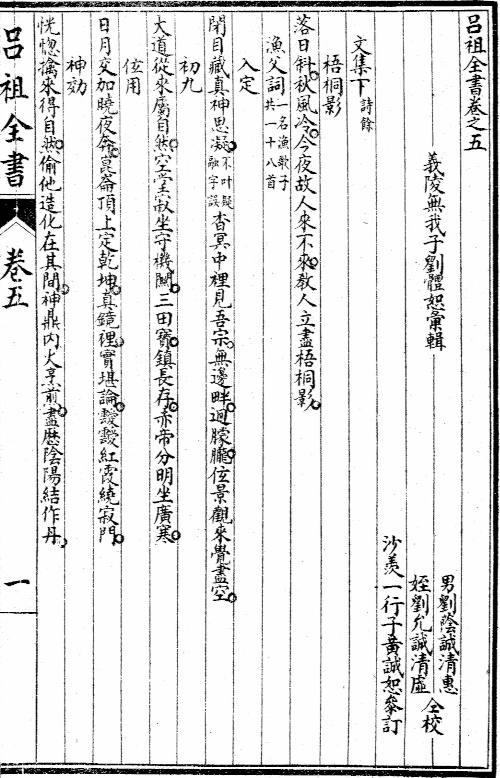 呂祖全書卷之五
義陵無我子劉體恕彙輯
男劉蔭誠清惠
姪劉允誠清虛
仝校
沙羨一行子黃誠恕參訂
文集下 詩餘
梧桐影
落日斜秋風冷今夜故人來不來敎人立盡梧桐影
漁父詞 一名漁歌子 共一十八首
入定
閉目藏真神思凝 不叶疑融字誤 杳冥中裡見吾宗無邊畔迥朦朧伭景觀來覺盡空
初九
大道從來屬自然空堂寂坐守機關三田寶鎮長存赤帝分明坐廣寒
伭用
日月交加曉夜奔崑崙頂上定乾坤真鏡裡實堪論靉靉紅霞繞寂門
神効
恍惚擒來得自然偷他造化在其間神鼎內火烹煎盡歷陰陽結作丹
呂祖全書
卷五
一